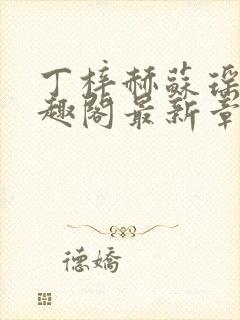 丁梓赫蘇瑶
趣閣最新章
德嬌